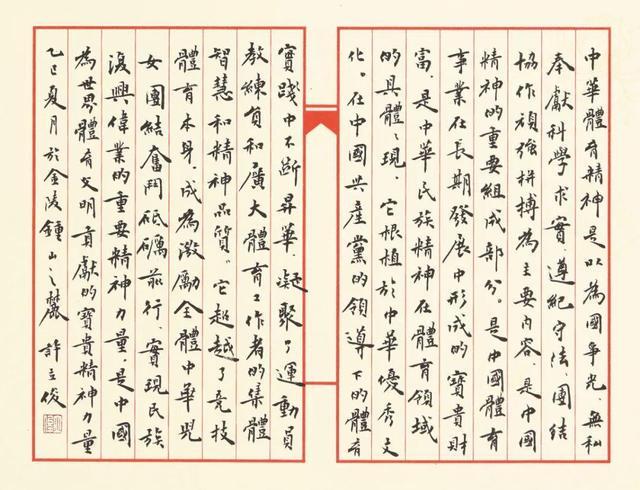 中華體育精神是以為國爭光、無私
奉獻科學求實、遵紀守法、團結
協作、頑強拼搏為主要內容、是中國
精神的重要組成部分。是中國體育
事業在長期發展中形成的寶貴財
富、是中華民族精神在體育領域
的具體體現、它根植於中華優秀文
化。在中國共產黨的領導下的體育
實踐中不斷昇華、凝聚了運動員
教練員和廣大體育工作者的集體
智慧和精神品質。它超越了競技
體育本身、成為激勵全體中華兒
女團結奮鬥砥礪前行、實現民族
復興偉業的重要精神力量是中國
為世界體育文明貢獻的寶貴精神力量
乙巳夏月於金陵鍾山之麓 許立俊